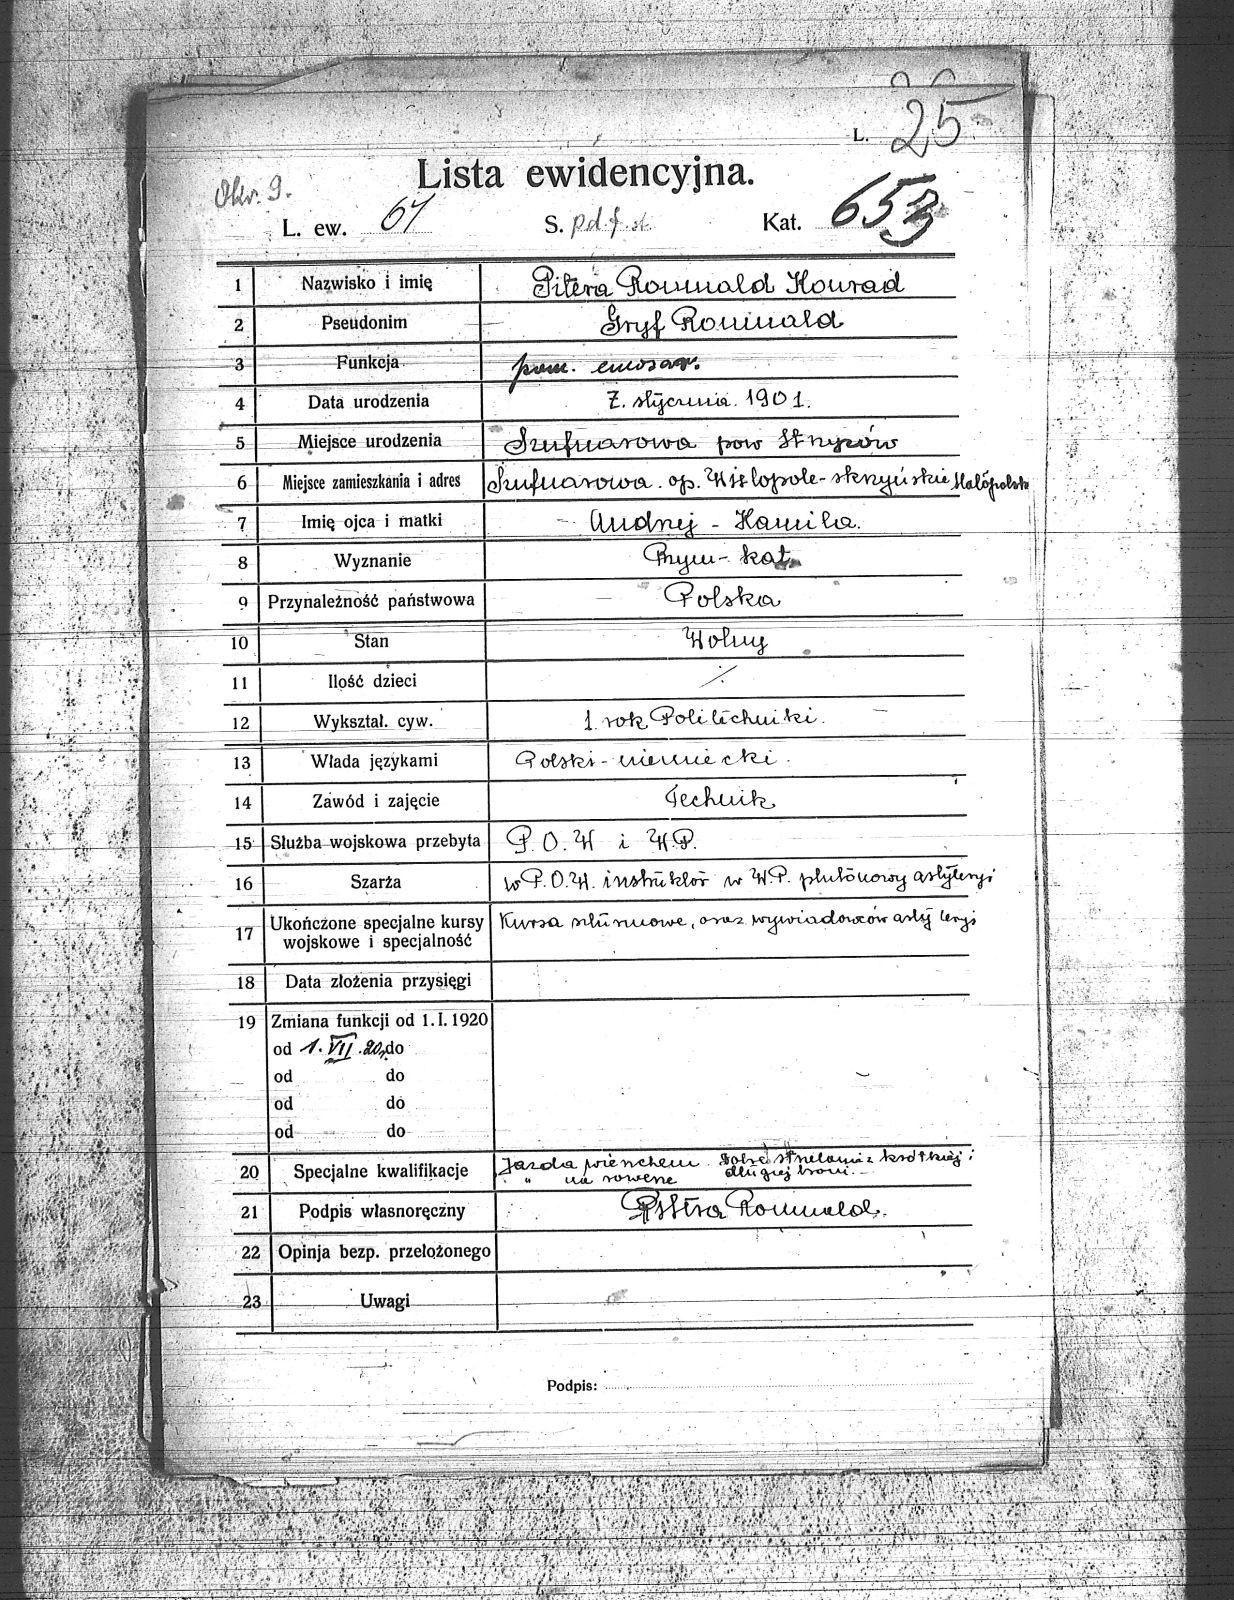 L. 25
Lista ewidencyjna.
Okr. 9.
L. ew. 67 S. pd. f. st. Kat. 653
1 Nazwisko i imię Pitera Romuald Konrad
2 Pseudonim Gryf Romuald
3 Funkcja pom. emisar.
4 Data urodzenia 7. stycznia 1901.
5 Miejsce urodzenia Szufnarowa pow Strzyżów
6 Miejsce zamieszkania i adres Szufnarowa op. Wielopole-skrzyńskie Małopolska
7 Imię ojca i matki Andrzej - Kamila.
8 Wyznanie Rzym-kat.
9 Przynależność państwowa Polska
10 Stan Wolny
11 Ilość dzieci ·/·
12 Wykształ. cyw. 1 rok Politechniki.
13 Włada językami Polski-niemiecki.
14 Zawód i zajęcie Technik
15 Służba wojskowa przebyta P.O.W i W.P.
16 Szarża w P.O.W. instruktor w W.P. plutonowy artyleryi
17 Ukończone specjalne kursy Kursa szturmowe, oraz wywiadowców artyleryi
wojskowe i specjalność
18 Data złożenia przysięgi
19 Zmiana funkcji od 1. I. 1920
od 1. VII. 20, do
od do
od do
od do
20 Specjalne kwalifikacje Jazda wierzchem Dobre strzelanie z krótkiej i
" na rowerze długiej broni.
21 Podpis własnoręczny Pitera Romuald.
22 Opinja bezp. przełożonego
23 Uwagi
Podpis: